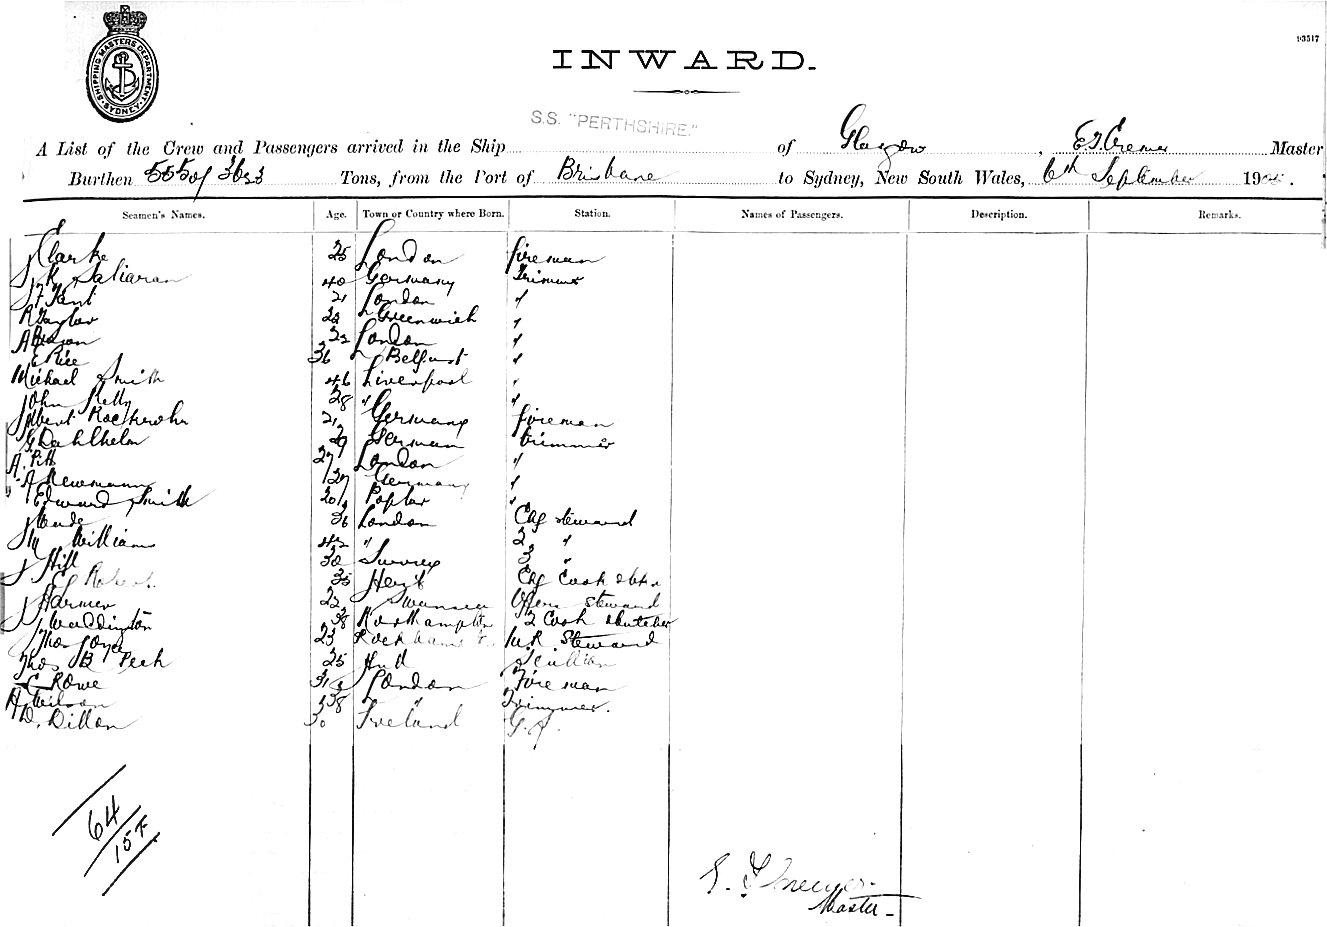 SHIPPING MASTERS DEPARTMENT SYDNEY
93517
INWARD.
S.S. "PERTHSHIRE."
A List of the Crew and Passengers arrived in the Ship of Glasgow, Master
Burthen Tons, from the Port of Brisbane to Sydney, New South Wales, 6th September 190
Seamen's Names. Age. Town or Country where Born. Station. Names of Passengers. Description. Remarks.
Clarke 25 London fireman
40 Germany Trimmer
21 London "
R Taylor 22 Greenwich "
A 22 London "
E Rice 36 Belfast "
Michael Smith 46 Liverpool "
John Kelly 28 " "
Albert 21 Germany fireman
G Dahlhelm 29 German trimmer
A. Pitt 27 London "
A Newmann 29 Germany "
Edward Smith 20 Poplar "
36 London Chf steward
Williams 42 " 2 "
J Hill 30 Surrey 3 "
35 Chf Cook
J Harmer 22 Swansea Steward
J Waddington 38 Northampton 2 Cook
Thos Joyce 23 Steward
Thos B Peck 25 Hull Scullion
C Rowe 31 London Fireman
A Wilson 38 " Trimmer.
D. Dillon 30 Ireland G.S.
64
154
Master